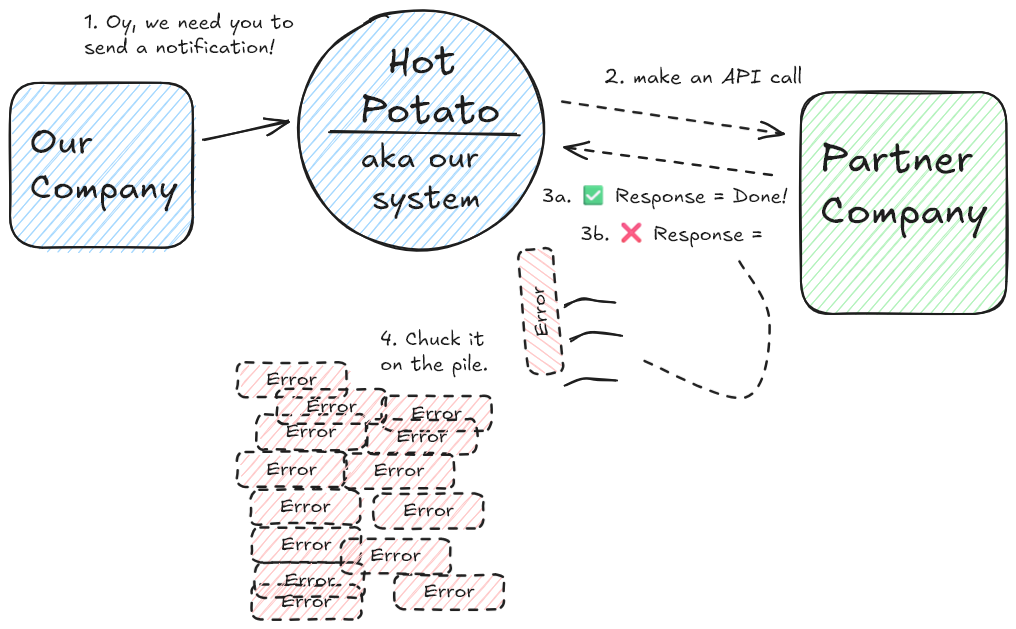 1. Oy, we need you to
send a notification!
Our
Company
Hot
Potato
aka our
system
2. make an API call
Partner
Company
3a. ✅ Response = Done!
3b. ❌ Response =
Error
4. Chuck it
on the pile.
Error
Error
Error
Error
Error
Error
Error
Error
Error
Error
Error
Error
Error
Error